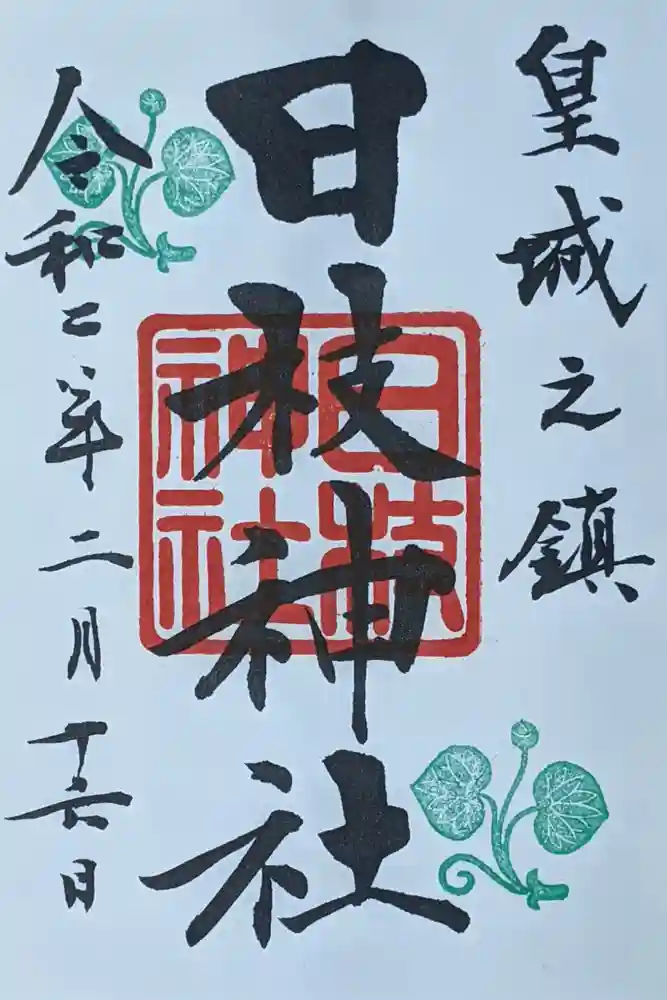 皇城之鎮
日枝神社
日枝神社
令和二年二月十六日